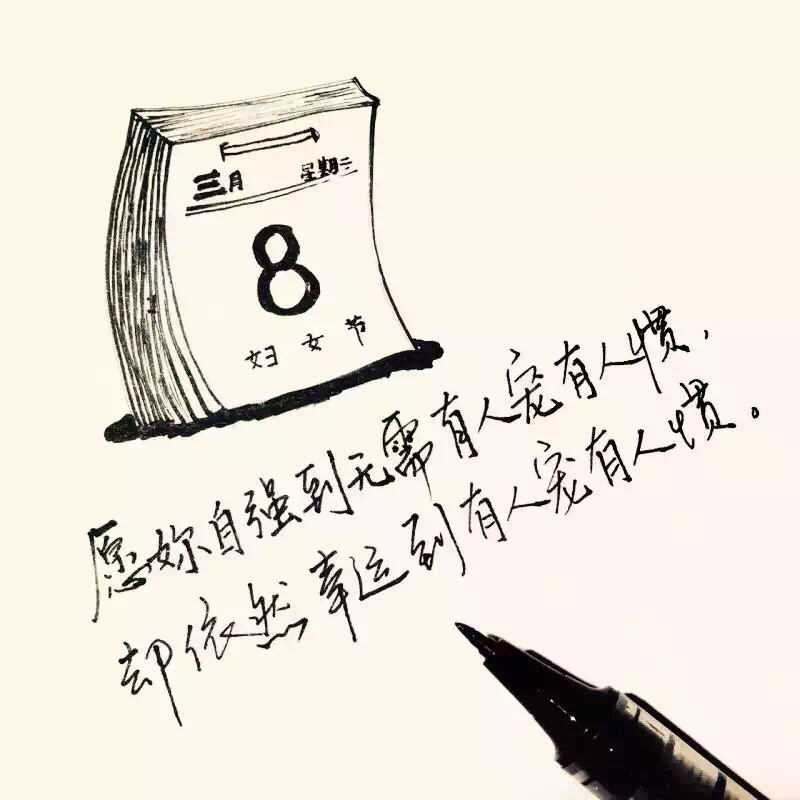 三月 星期二
8
妇女节
愿妳自强到无需有人宠有人惯，
却依然幸运到有人宠有人惯。